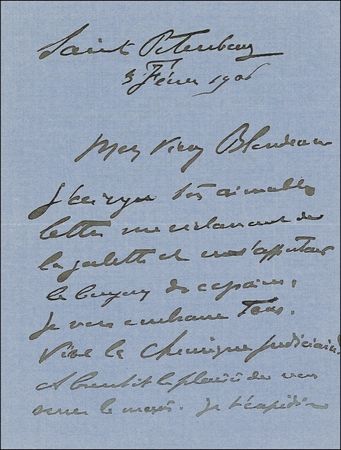 Saint Petersbourg
3 Févier 1906
Mon Vieux Blondeau
J'ai reçu tes aimables
lettres me réclamant de
la galette et m'apportant
le bonjour des copains,
Je vous embrasse Tous.
Vive la Chronique judiciaire
A bientôt le plaisir de vous
serrer la main. Je t'expédie